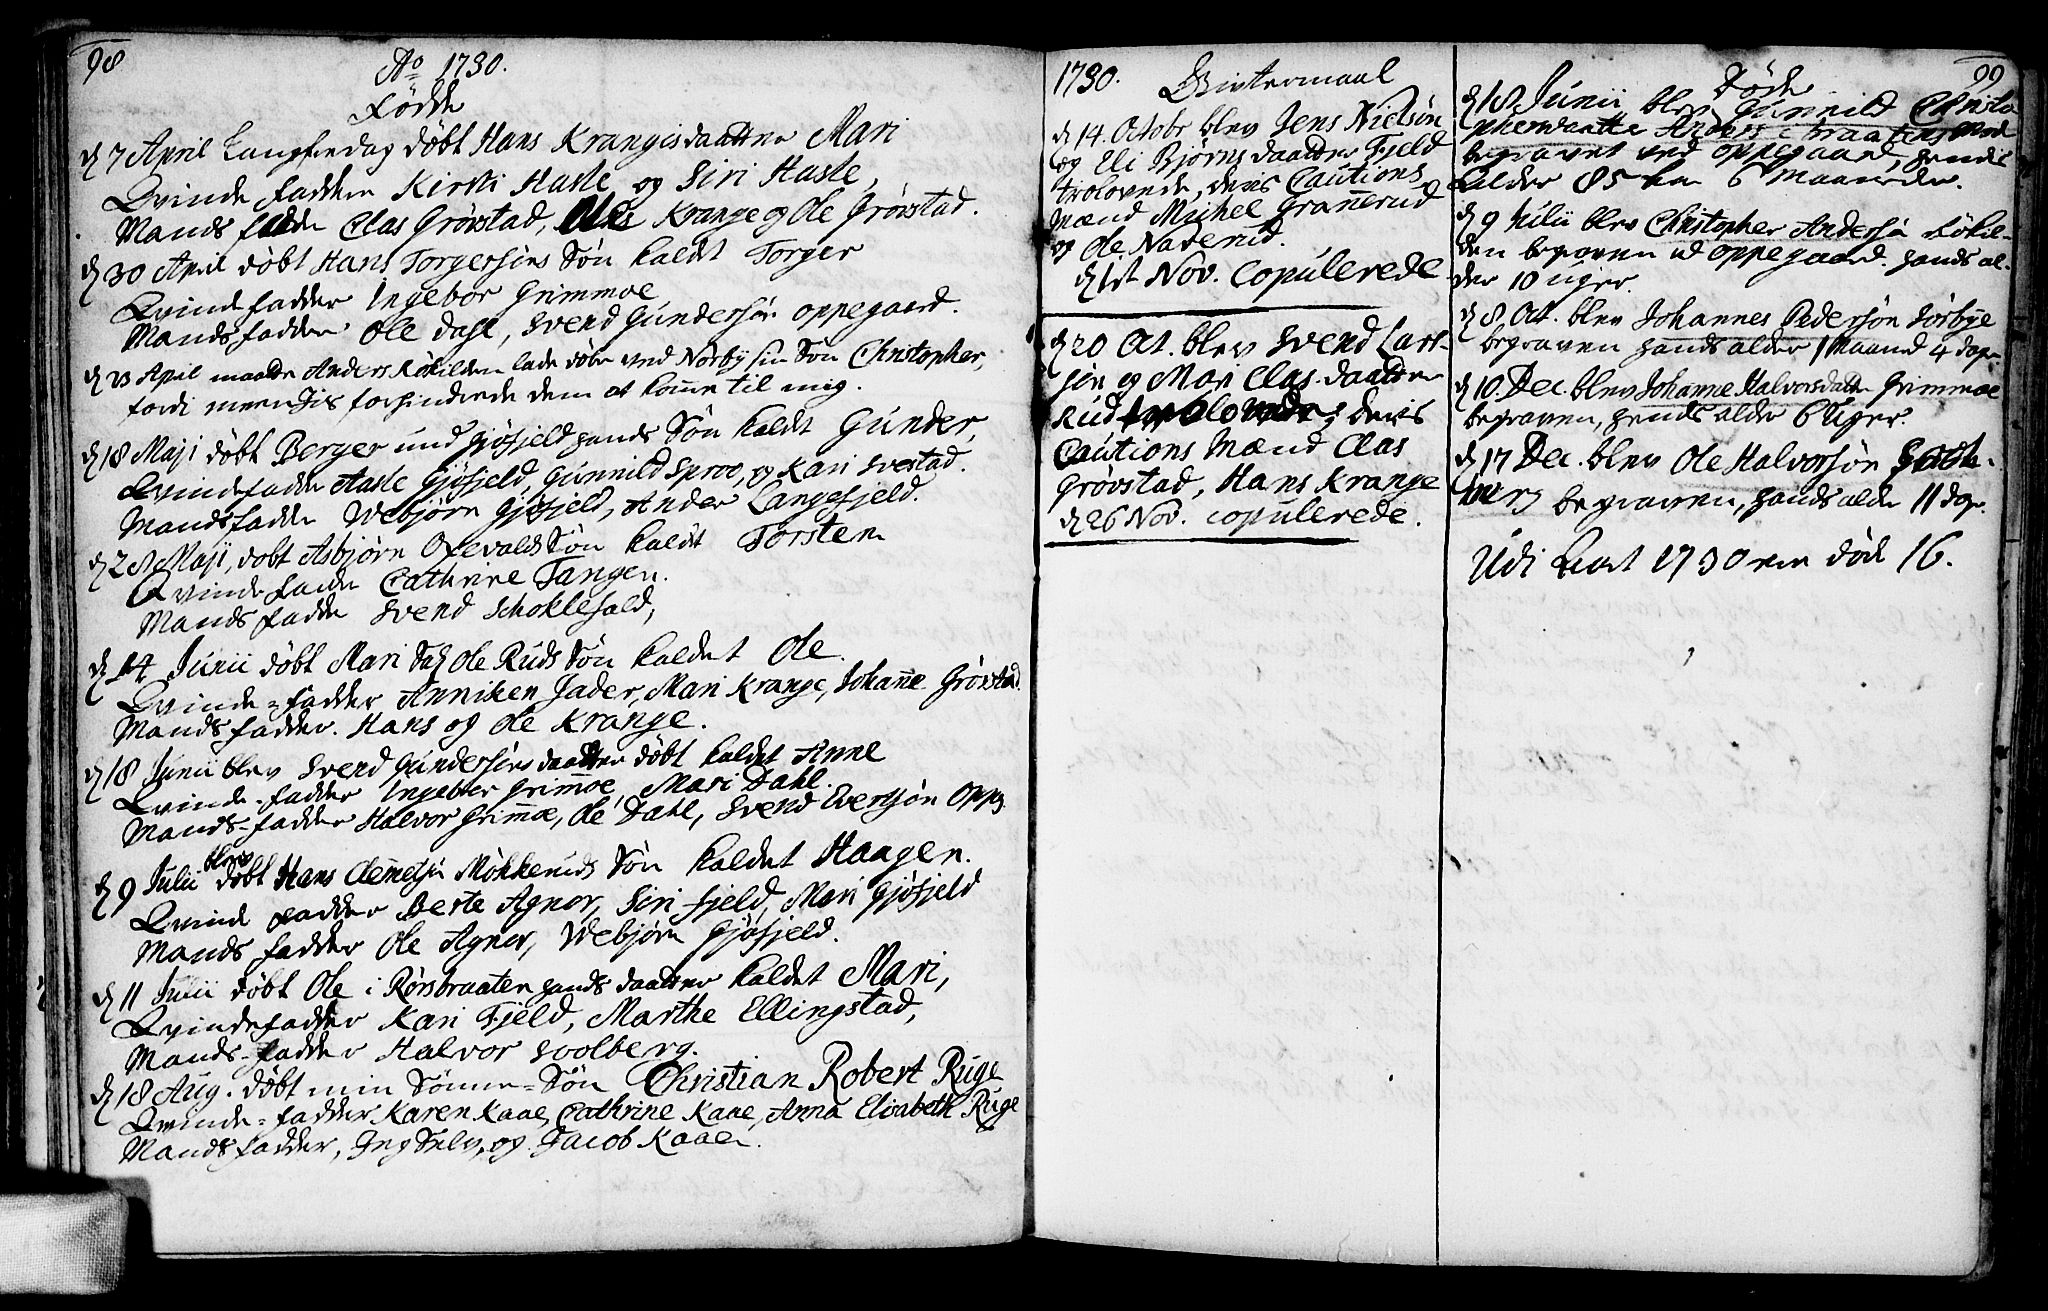 98
Ao 1730.
Fødde
d 7 April Langfredag døbt Hans Krangisdaatter Mari
Qvinde fadder Kirsti Hasle og Siri Hasle,
Mands fadder Clas Grøvstad, Ole Krange og Ole Grøvstad.
d 30 April døbt Hans Torgersøns Søn kaldt Torger
Qvindefadder Ingebor Grimmoe
Mandsfadder Ole Dahl, Svend Gundersøn Oppegaard.
d 23 April maatte Anders Kølilden lade døbe ved Norby sin Søn Christopher,
fordi meen Jis forhindrede dem at komme til mig.
d 18 Maji døbt Berger und Gjøfjeld hands Søn kaldt Gunder,
Qvindefadder Aasle Gjøfjeld, Gunnild Sproo, og Kari Svestad.
Mandsfadder Webjørn Gjøfjeld, Ander Langefjeld.
d 28 Maji, døbt Asbjørn Oxevalds Søn kaldt Torsten
Qvindefadder Cathrine Tangen.
Mandsfadder Svend Schoklefald,
d 14 Junii døbt Mari og Ole Ruds Søn kaldet Ole.
Qvinde-fadder Anniken Jader, Mari Krange, Johanne Grøvstad
Mandsfadder. Hans og Ole Krange.
d 18 Junii blev Svend Gundersøns daatter døbt kaldet Anne
Qvinde-fadder Ingebor Grimmoe, Mari Dahl.
Mands-fadder Halvor Grimmoe, Ole Dahl, Svend Eversøn Oppg.
d 9 Julii blev døbt Hans Clemetsøn Møkkeruds Søn kaldet Haagen.
Qvinde fadder Berte Agnor, Siri Fjeld, Mari Gjøfjeld
Mands fadder Ole Agnor, Webjørn Gjøfjeld.
d 11 Julii døbt Ole i Rørsbraaten hands daatter kaldet Mari,
Qvindefadder Kari Fjeld, Marthe Ellingstad,
Mands-fadder Halvor Soolberg.
d 18 Aug. døbt min Sønne-Søn Christian Robert Ruge
Qvinde-fadder Karen Kaae, Cathrine Kaae, Anna Elisabeth Ruge
Mandsfadder, Jeg Selv, og Jacob Kaae.
1730. Qvistermaal
d 14. Octobr blev Jens Nielsøn
og Eli Bjørnsdaatter Fjeld
trolovede, deris Cautions
mænd Michel Granerud
og Ole Naverud.
d 1st Nov. copulerede
d 20 Oct. blev Svend Lars-
søn og Mari Clas-daatter
Rud trolovede, deris
Cautions Mænd Clas
Grøvstad, Hans Krange
d 26 Nov. copulerede.
99
Døde
d 18 Junii blev Gunnild Christo
pherdaatter Anders Braatens Mod
begravet ved Oppegaard, hendis
alder 85 aar 6 Maaneder.
d 9 Julii blev Christopher Andersøn Kølil-
den begraven ved Oppegaard. hands al-
der 10 uger.
d 8 Oct. blev Johannes Pedersøn Sørbye
begraven hands alder 1 Maaned 4 dage
d 10 Dec. blev Johanne Halvorsdatter Grimmoe
begraven, hendis alder 6 Uger.
d 17 Dec. blev Ole Halvorsøn
begraven, hands alder 11 dage.
Udi Aaret 1730 ere døde 16.